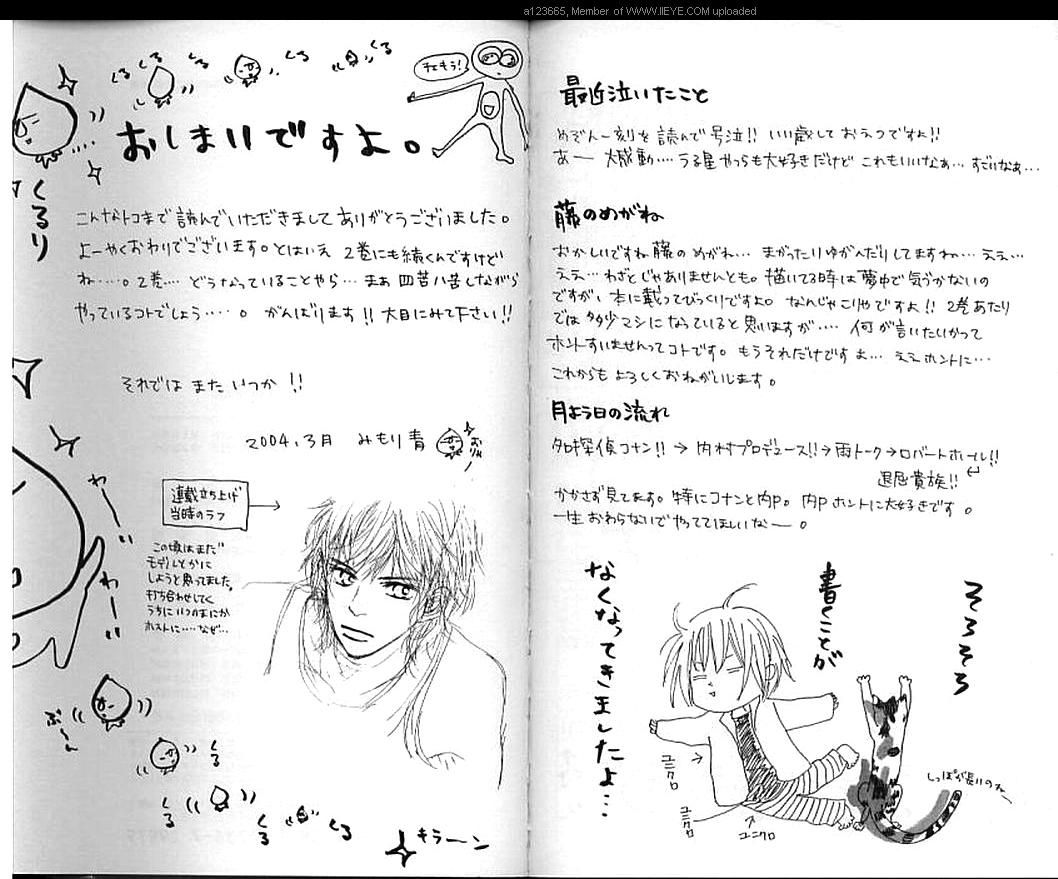 a123665, Member of WWW.IIEYE.COM uploaded
最近泣いたこと
めぞん一刻を読んで号泣!! いい歳しておえつですよ!!
あー 大感動…. うる星やつらも大好きだけど これもいいなぁ… すごいなぁ…
藤のめがね
おかしいですね 藤の めがね… まがったりゆがんだりしてますね… ええ…
ええ… わざとじゃありませんとも。描いてる時は夢中で気づかないの
ですが、本に載ってびっくりですよ。なんじゃこりゃですよ!! 2巻あたり
では多少マシになっていると思いますが…. 何が言いたいかって
ホントすいませんってコトです。もうそれだけですよ… ええホントに…
これからも よろしくおねがいします。
月よう日の流れ
名探偵コナン!! → 内村プロデュース!! → 雨トーク → ロバートホール!!
退屈貴族!!
かかさず見てます。特にコナンと内P。内P ホントに大好きです。
一生おわらないでやっててほしいなー。
そろそろ
書くことが
なくなってきましたよ…
ユニクロ
ユニクロ
ユニクロ
しっぽが長いのねー
くる
くる
くる
くる
くる
チェもう!
おしまいですよ。
くるり
こんなトコまで読んでいただきましてありがとうございました。
よーやくおわりでございます。とはいえ 2巻にも続くんですけど
ね…..。2巻…. どうなっていることやら… まぁ 四苦八苦しながら
やっているコトでしょう…..。 がんばります!! 大目にみて下さい!!
それでは また いつか !!
2004.3月 みもり青
連載立ち上げ
当時のラフ
この頃はまだ
モデルとかに
しようと思ってました。
打ち合わせしてく
うちにいつのまにか
ホストに….なぜ…
わーい
わーい
ぷ〜ん
くる
くる
くる
くる
キラーン